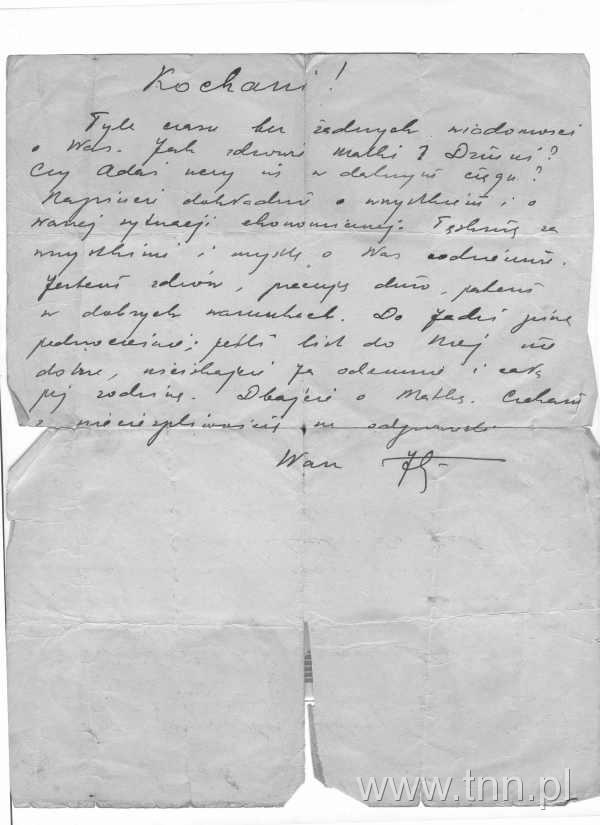 Kochani!
Tyle czasu bez żadnych wiadomości
o Was. Jak zdrowie Matki i Dzieci?
Czy Adaś uczy się w dalszym ciągu?
Napiszcie dokładnie o wszystkim i o
waszej sytuacji ekonomicznej. Tęsknię za
wszystkimi i myślę o Was codziennie.
Jestem zdrów, pracuję dużo, jestem
w dobrych warunkach. Do Jadzi piszę
jednocześnie; jeśli list do Niej nie
dojdzie, uściskajcie Ją odemnie i całą
jej rodzinę. Dbajcie o Matkę. Czekam
z niecierpliwością na odpowiedź
Wasz
www.tnn.pl